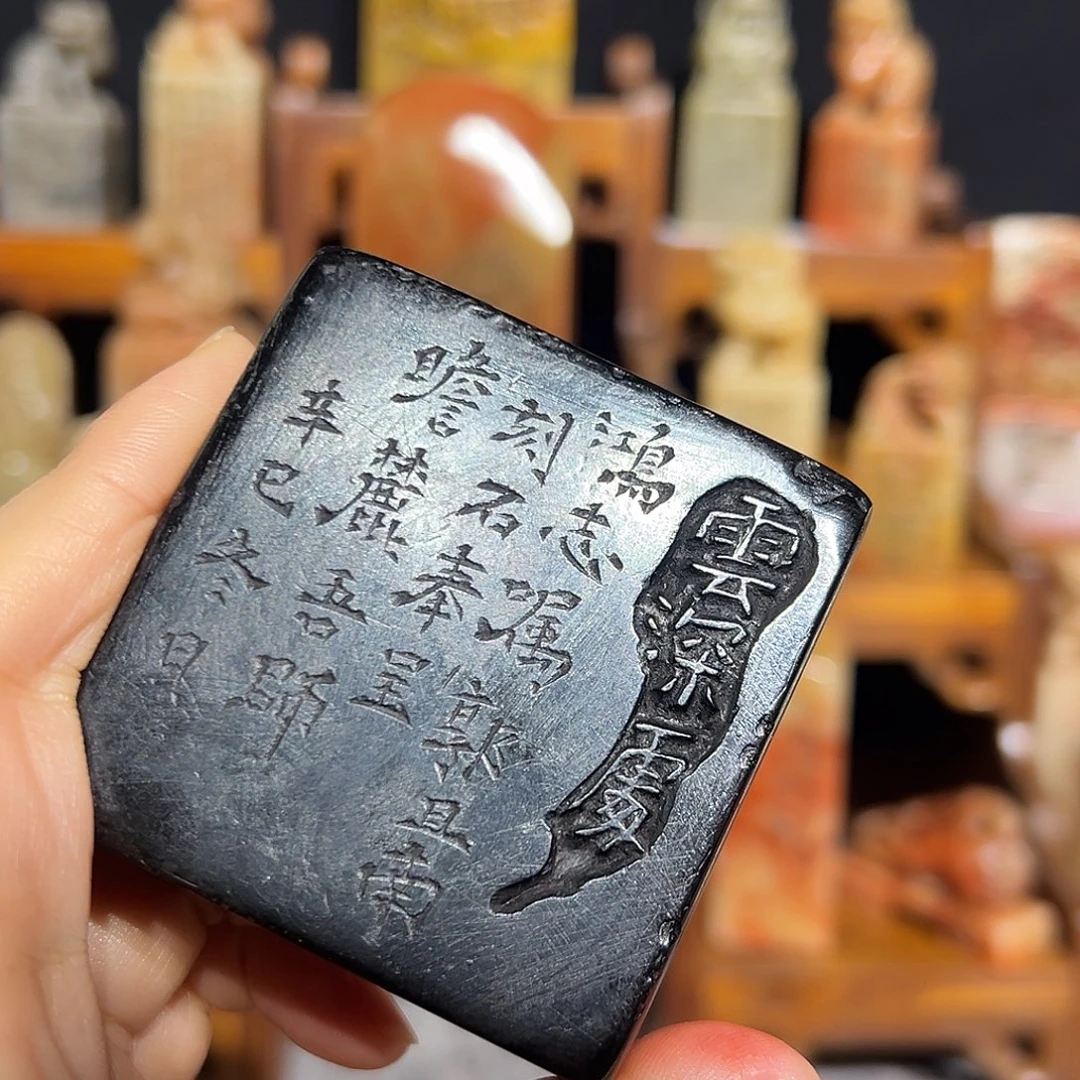 雲深處
鴻志属郭且南
刻石奉呈
瞻麓吾師
辛巳冬日